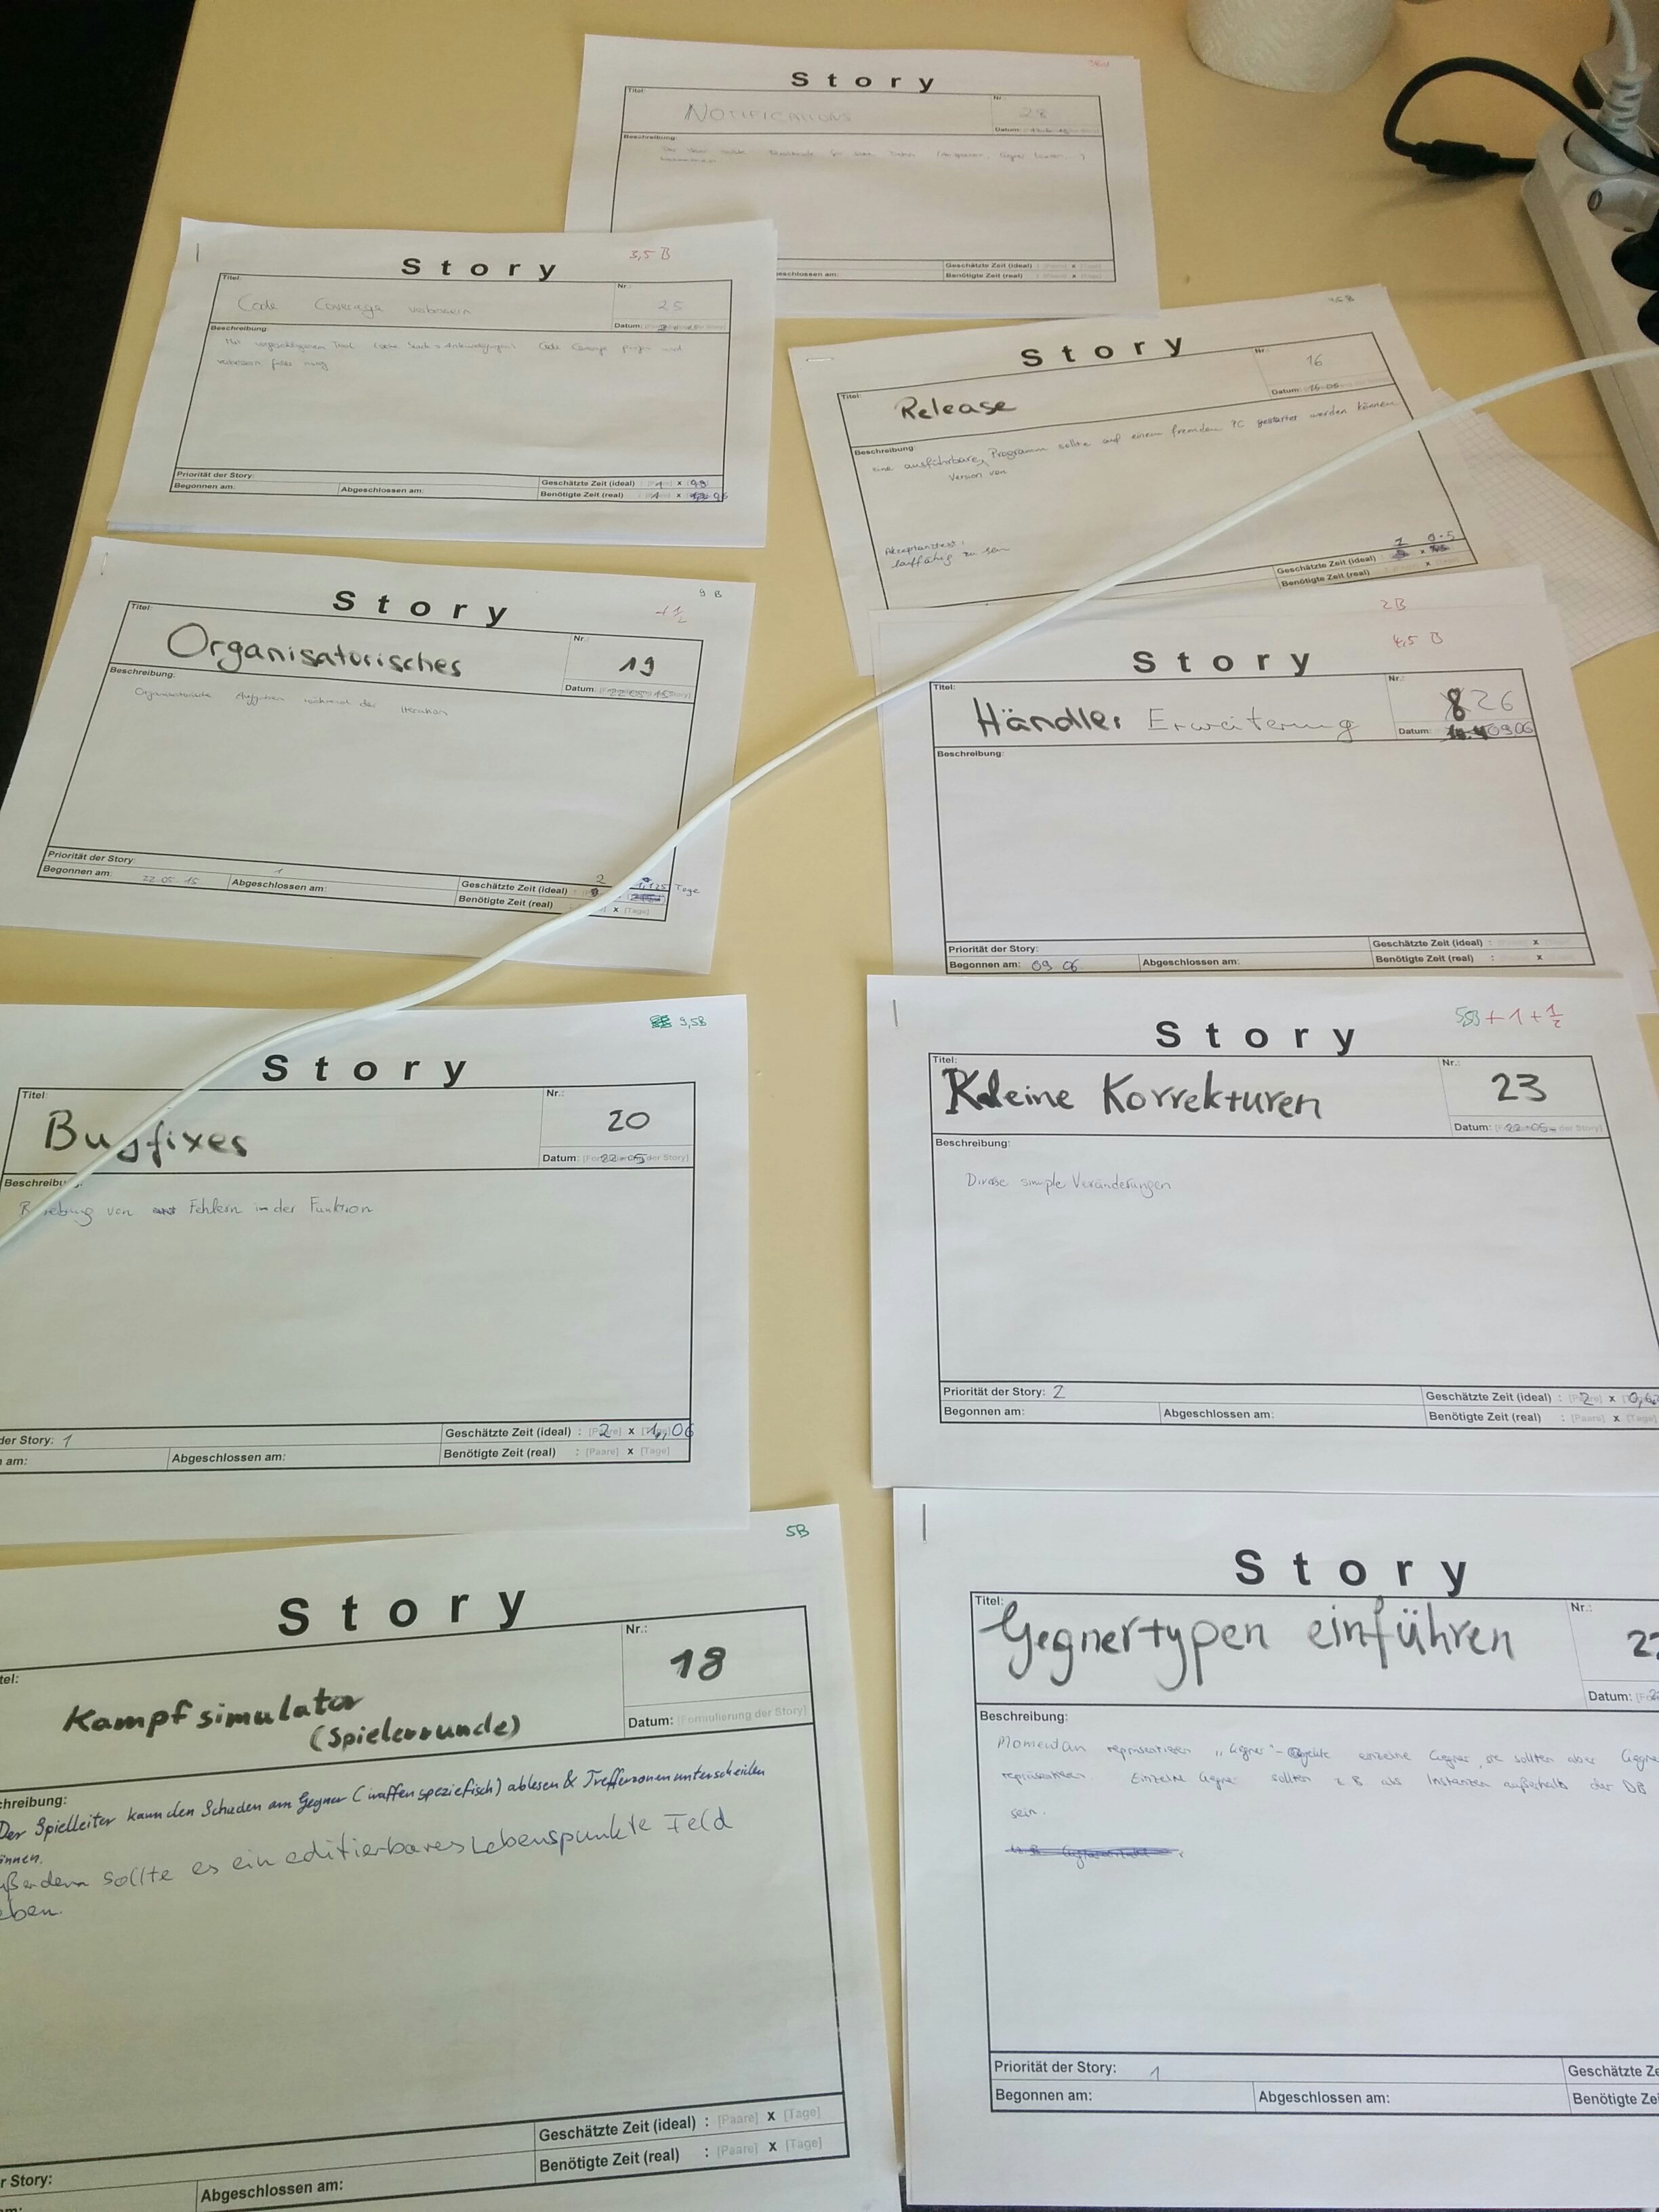 Story
Titel:
NOTIFICATIONS
Nr.
28
Datum:
Beschreibung:
Geschätzte Zeit (ideal) : x
Benötigte Zeit (real) : x
3,5 B
Story
Titel:
Code Coverage verbessern
Nr.
25
Datum:
Beschreibung:
Code Coverage und
verbessern falls nötig
Priorität der Story:
Begonnen am:
Abgeschlossen am:
Geschätzte Zeit (ideal) : 1 x
Benötigte Zeit (real) : 1 x
Story
Titel:
Release
Nr.
16
Datum:
Beschreibung:
eine ausführbare Programm sollte auf einem fremden PC gestartet werden können
Version von
Akzeptanztest:
lauffähig zu sein
Geschätzte Zeit (ideal) : x
Benötigte Zeit (real) : x
9 B
+ 1/2
Story
Titel:
Organisatorisches
Nr.:
19
Datum:
Beschreibung:
Organisatorische Aufgaben während der Iteration
Priorität der Story: 1
Begonnen am: 22 05 15
Abgeschlossen am:
Geschätzte Zeit (ideal) : 2 1,125 Tage
Benötigte Zeit (real) : x [Tage]
2B
4,5 B
Story
Titel:
Händler Erweiterung
Nr.:
8 26
Datum: 09.06
Beschreibung:
Priorität der Story:
Begonnen am: 09 06
Abgeschlossen am:
Geschätzte Zeit (ideal) : x
Benötigte Zeit (real) : x
9,5B
Story
Titel:
Bugfixes
Nr.:
20
Datum: 22-05
Beschreibung:
von Fehlern in der Funktion
der Story: 1
am:
Abgeschlossen am:
Geschätzte Zeit (ideal) : 2 x 1,06
Benötigte Zeit (real) : [Paare] x [Tage]
5,5B + 1 + 1/2
Story
Titel:
Kleine Korrekturen
Nr.:
23
Datum: 22-05-
Beschreibung:
Diverse simple Veränderungen
Priorität der Story: 2
Begonnen am:
Abgeschlossen am:
Geschätzte Zeit (ideal) : 2 x
Benötigte Zeit (real) : [Paare] x [Tage]
5B
Story
Kampfsimulator
(Spielerrunde)
Nr.:
18
Datum: [Formulierung der Story]
Der Spielleiter kann den Schaden am Gegner (waffenspeziefisch) ablesen & Trefferzonen unterscheiden
önnen.
ßerdem sollte es ein editierbares Lebenspunkte Feld
eben.
r Story:
Abgeschlossen am:
Geschätzte Zeit (ideal) : [Paare] x [Tage]
Benötigte Zeit (real) : [Paare] x [Tage]
Story
Titel:
Gegnertypen einführen
Nr.:
Datum:
Beschreibung:
Momentan repräsentieren „Gegner"-Objekte einzelne Gegner, sie sollten aber
repräsentieren. Einzelne Gegner sollten z.B. als Instanzen außerhalb der DB
sein.
Priorität der Story: 1
Begonnen am:
Abgeschlossen am:
Geschätzte Ze
Benötigte Zei